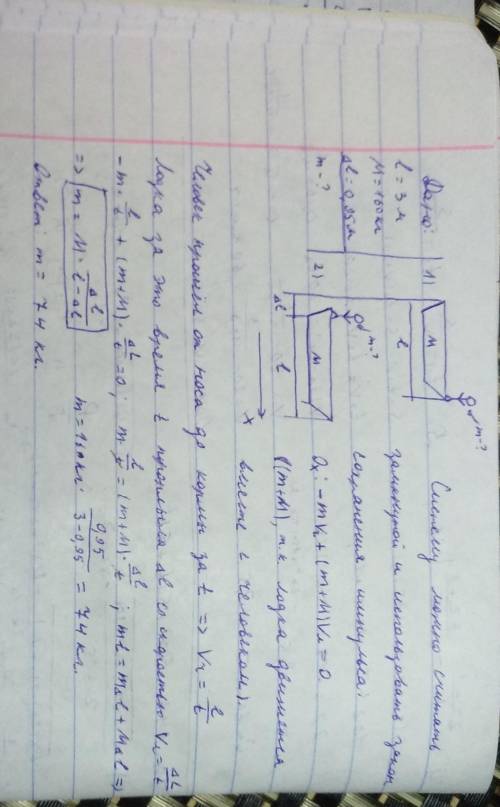 Дано:
l = 3 м
M = 160 кг
Δl = 0,95 м
m - ?
1)
M
m - ?
l
2)
M
m - ?
Δl
l
x
Систему можно считать
замкнутой и использовать закон
сохранения импульса:
Ox: -mV₁ + (m+M)V₂ = 0
((m+M), т.к лодка движется
вместе с человеком)
Человек прошёл от носа до кормы за t => V₁ = l/t
Лодка за это время t проплыла Δl со скоростью V₂ = Δl/t
-m·l/t + (m+M)·Δl/t = 0; m l/t = (m+M)·Δl/t; ml = mΔl + MΔl =>
=> m = M·Δl/(l-Δl) m = 160кг· 0,95/(3-0,95) = 74 кг.
Ответ: m = 74 кг.